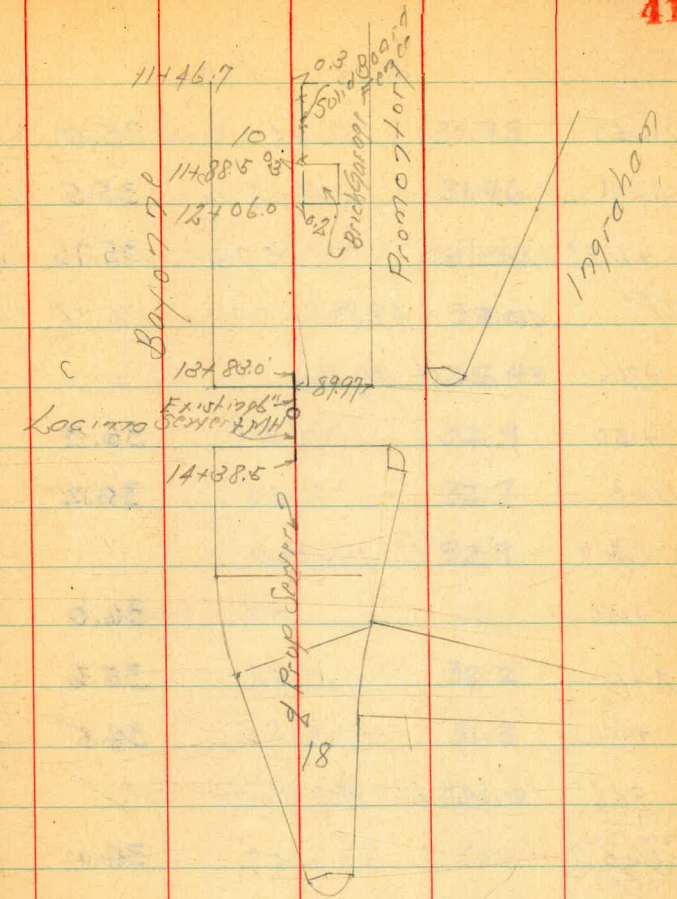 41
11+46.7
0.3
Solid Board Fence
10
11+88.5
0.5
12+06.0
0.2
Brick Garage
Promontory
Ingraham
Bayonne
13+83.0
89.97
Existing 6"
Sewer & MH
14+38.5
Prop Sewer
18